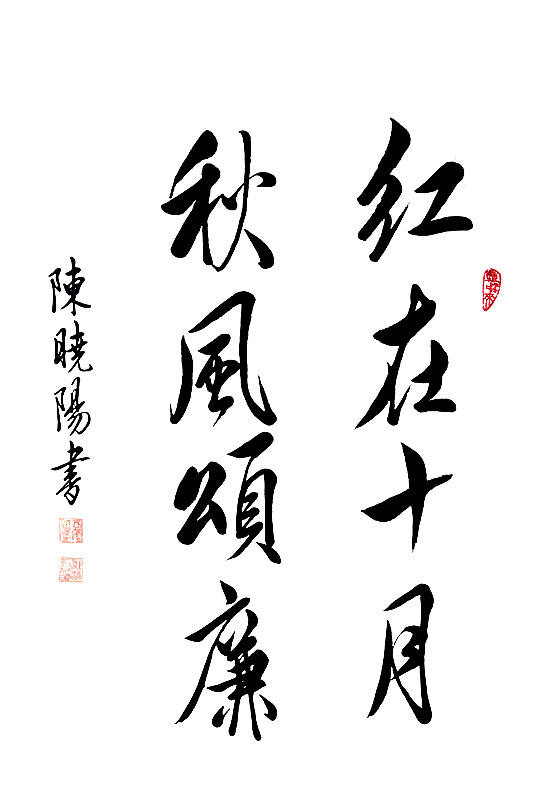 红在十月
秋風頌廉
陳曉陽書